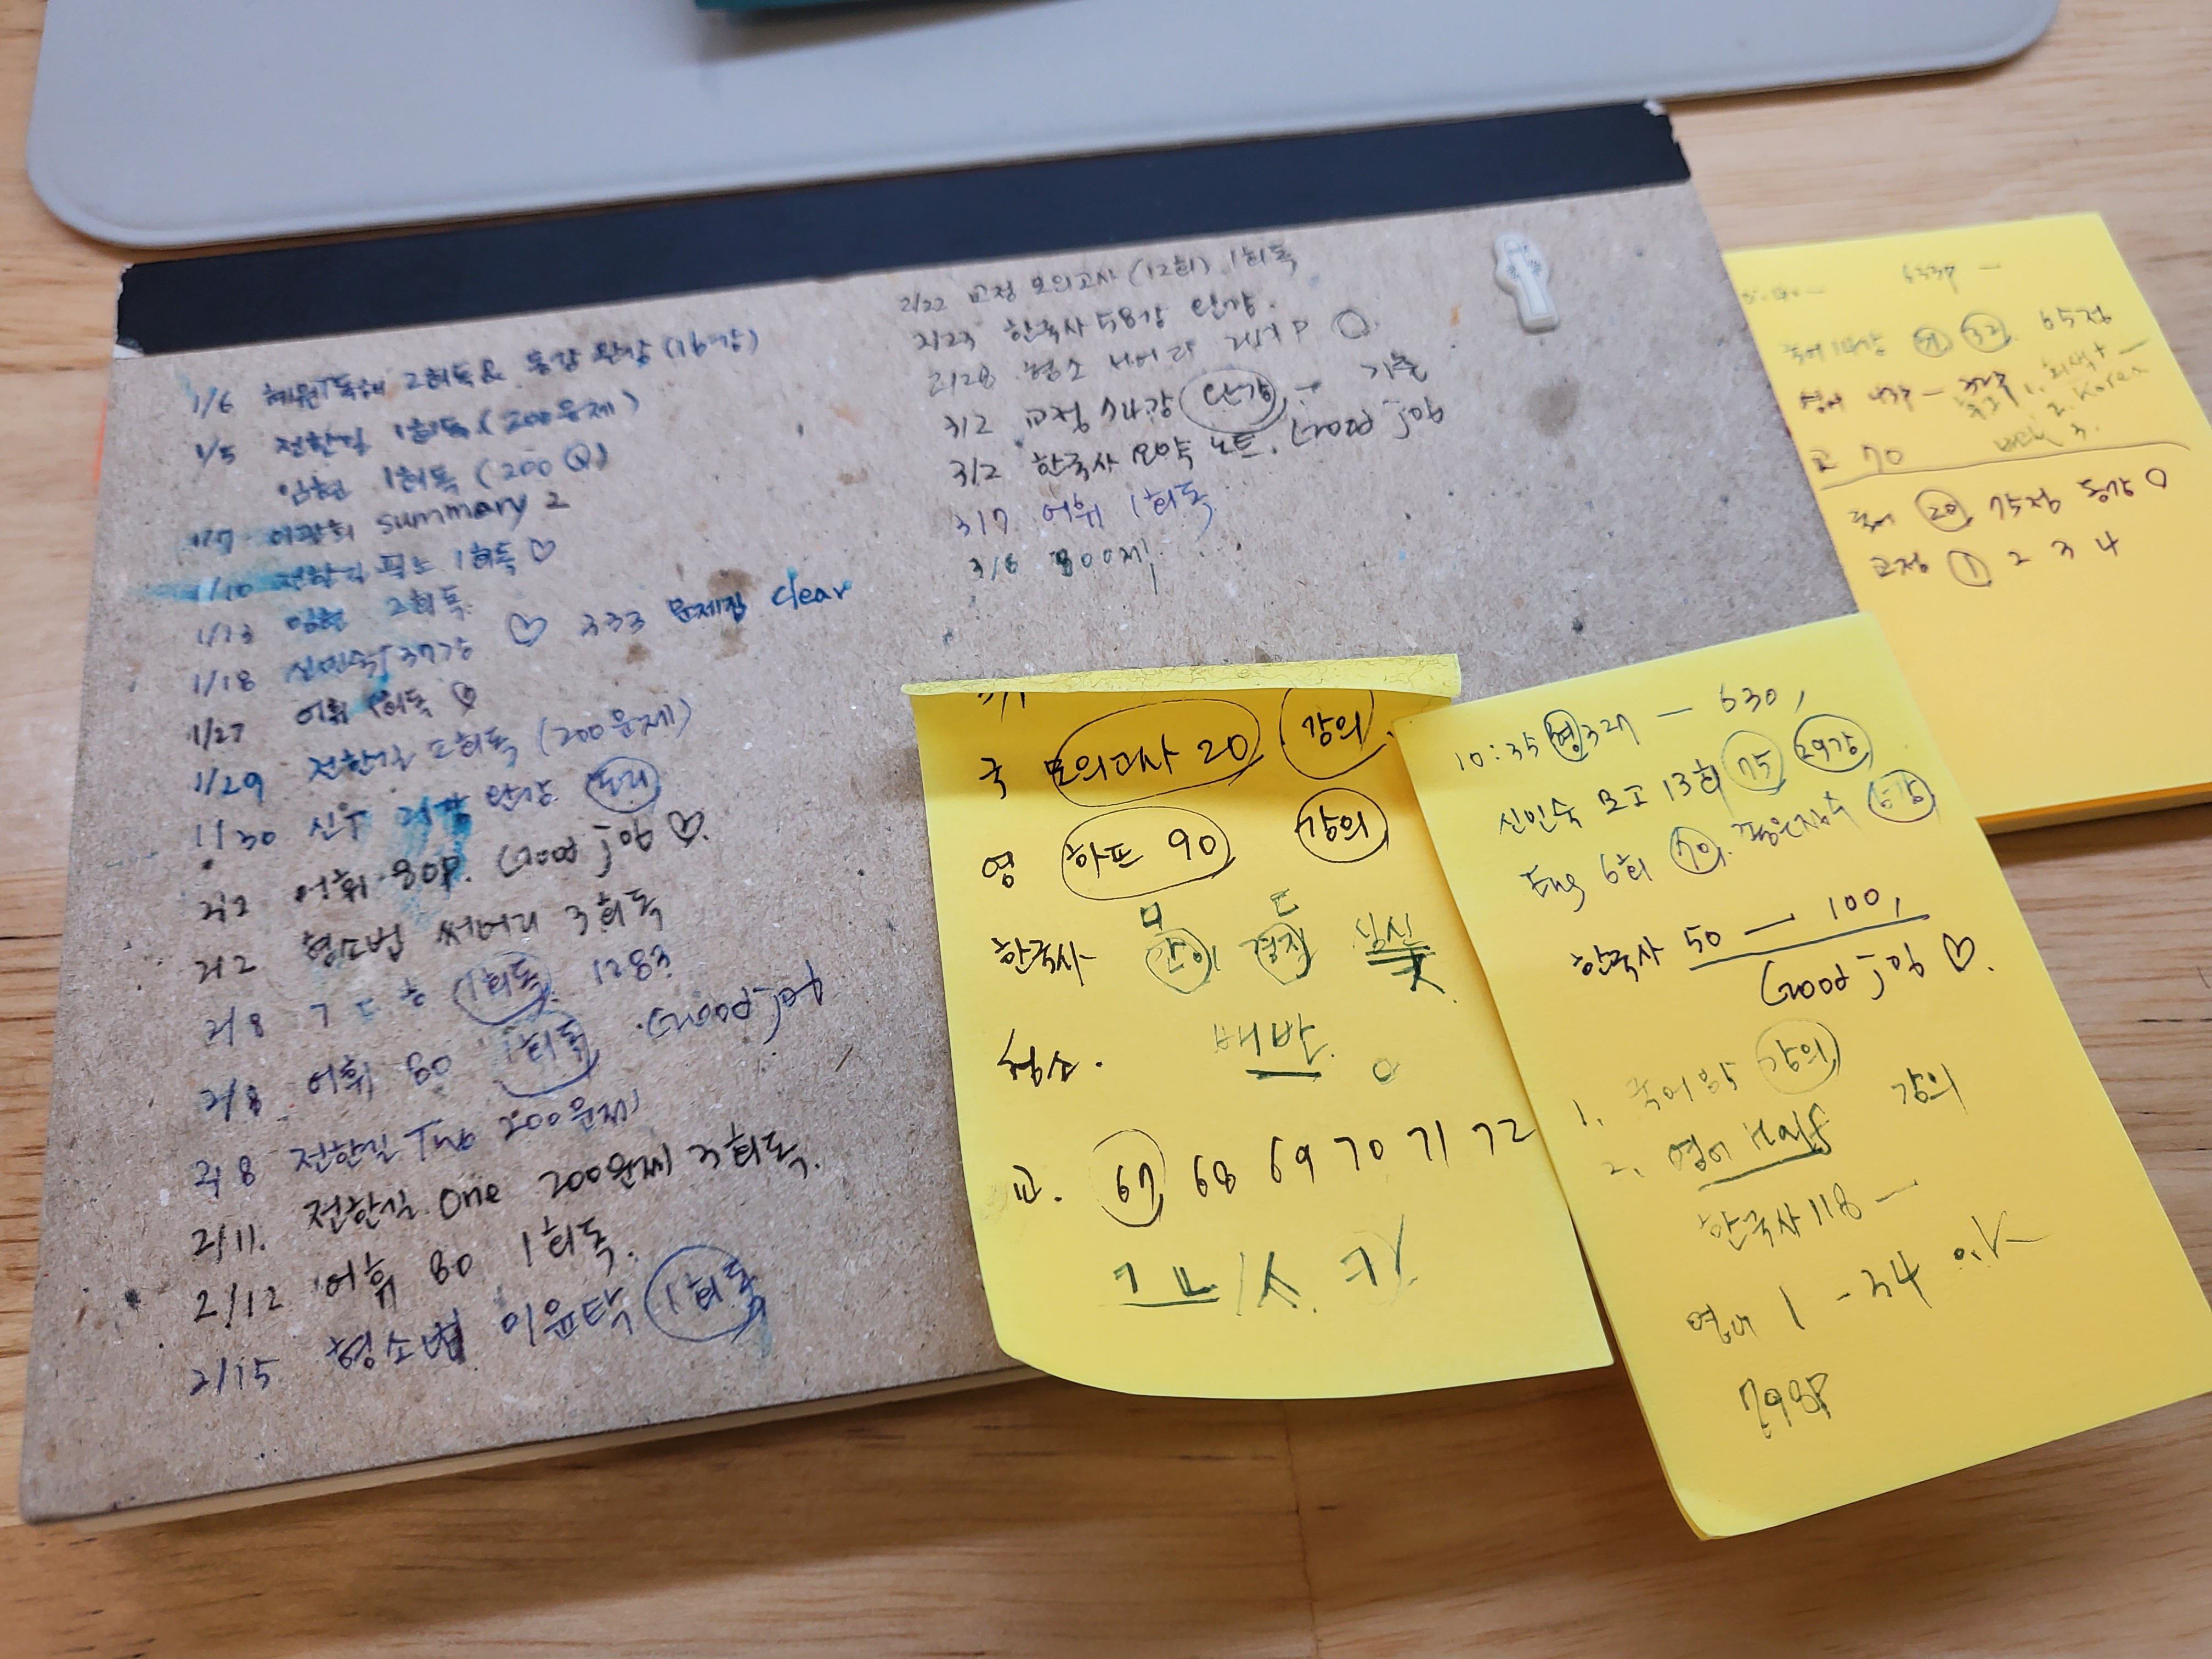 1/6 혜원T독해 2회독 & 동강 완강 (16강)
1/5 전한길 1회독 (200문제)
임현 1회독 (200 Q)
1/7 이광희 summary 2
1/10 전한길 필노 1회독 ♡
1/13 임현 2회독
1/18 신민숙T 37강 ♡ 333 문제집 clear
1/27 어휘 1회독 ♡
1/29 전한길 2회독 (200문제)
1/30 완강
2/2 어휘 80P. Good job ♡.
2/2 형소법 써머리 3회독
2/8 ㄱㄷㅎ 1회독 1283
2/8 어휘 80 1회독 Good job
2/8 전한길 Two 200문제
2/11. 전한길 One 200문제 3회독.
2/12 어휘 80 1회독.
2/15 형소법 이윤탁 1회독
2/22 교정 모의고사 (12회) 1회독
2/23 한국사 58강 완강.
2/28 형소 P
3/2 교정 54강 완강 기출
3/2 한국사 요약노트. Good job
3/7 어휘 1회독
3/8 800제
국 모의고사 20 강의.
영 하프 90 강의
한국사
형소.
배반
교. 67 68 69 70 71 72
10:35 형 327 — 630,
신민숙 모고 13회 75 29강
Eng 6회 70.
한국사 50 — 100,
Good job ♡.
1. 국어 85 강의
2. 영어 Half 강의
한국사 118 —
영어 1 - 34
798P
633P —
65점
교 70
국어 20 75점 동강 O
교정 1 2 3 4